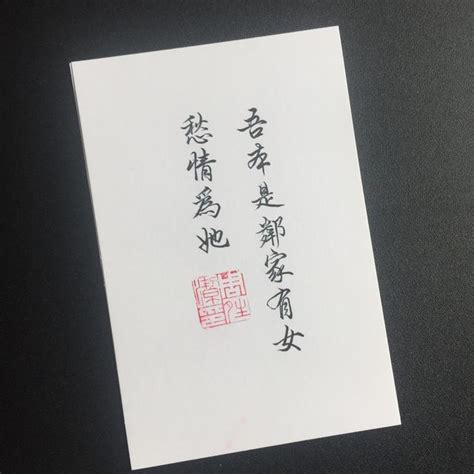 吾本是鄰家有女
愁情為她